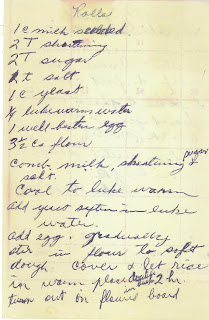 Rolls
1 c milk scalded
2 T shortening
2 T sugar
2 t salt
1 c yeast
¼ lukewarm water
1 well beaten egg
3½ Cs flour
Comb. milk, shortening & sugar
salt.
Cool to luke warm
add yeast in luke
water.
add egg. gradually
stir in flour to soft
dough cover & let rise
in warm place 2 hr.
turn out on flowerd board